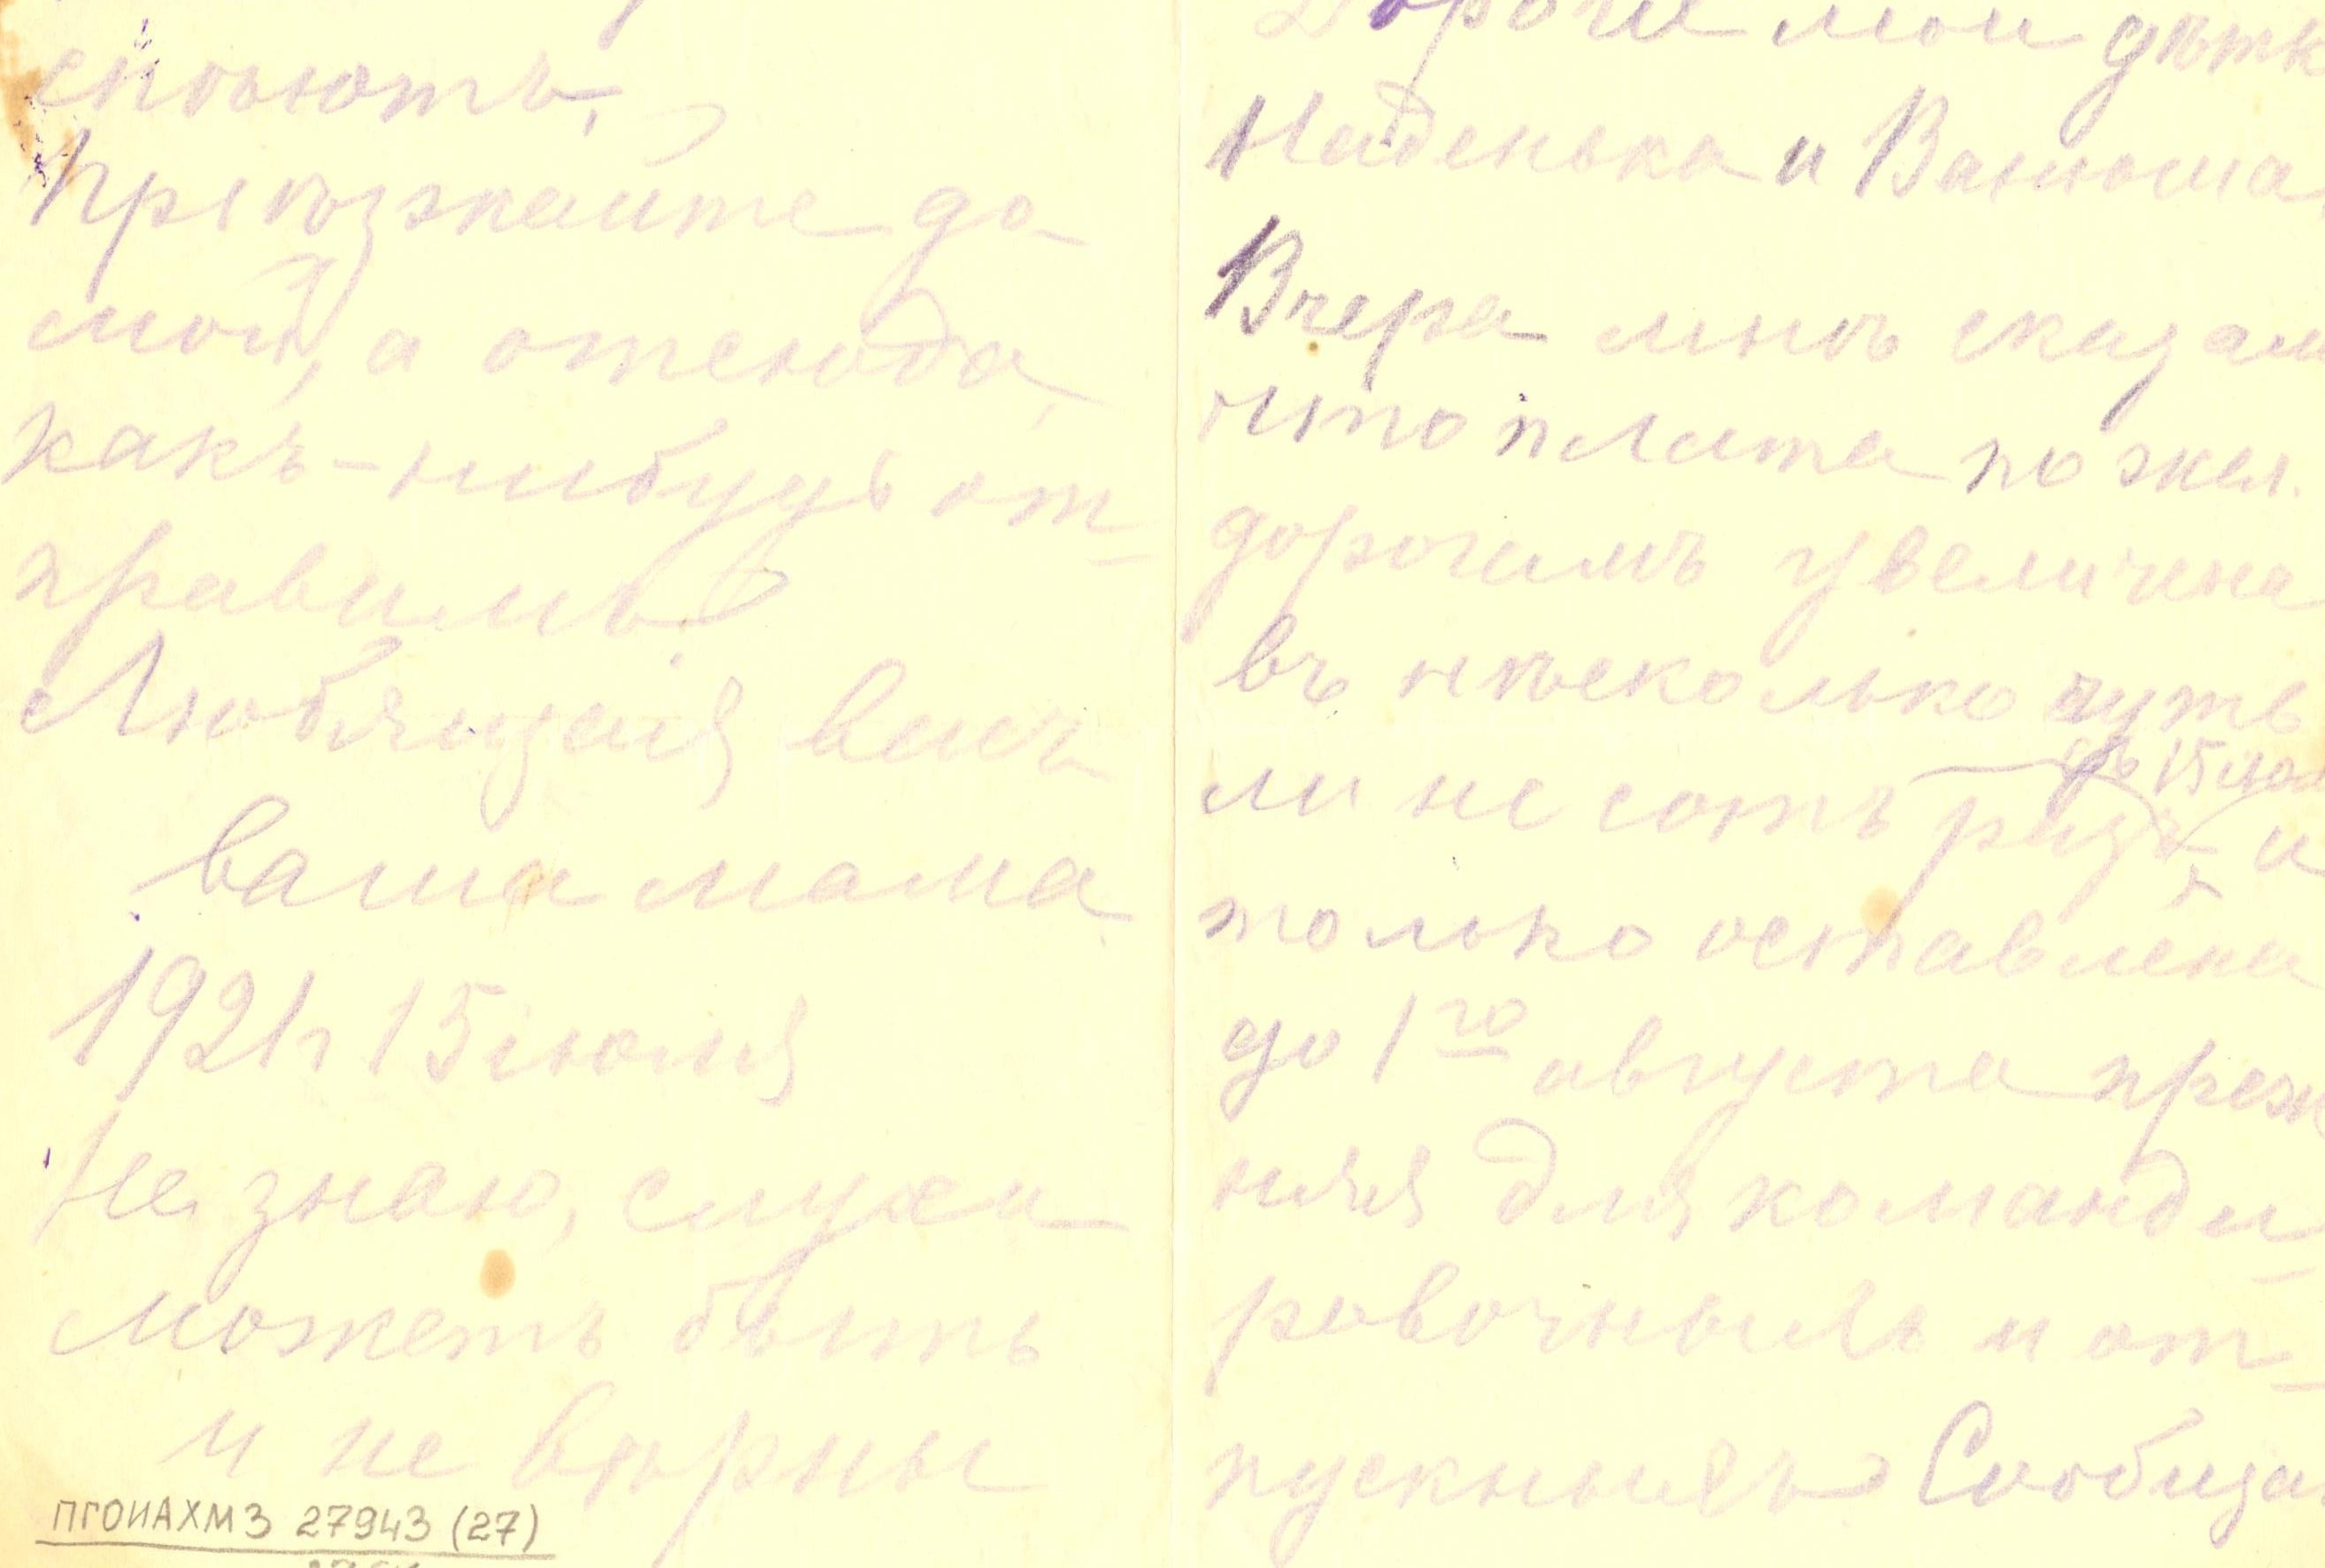 спѣютъ.
Пріѣзжайте до-
мой, а отсюда,
какъ-нибудь от-
правимъ.
Любящая васъ
ваша мама
1921 г 15 іюля
Не знаю, слухи
можетъ быть
и не вѣрны
ПГОИАХМЗ 27943 (27)
Дорогіе мои дѣтк
Наденька и Ванюша.
Вчера мнѣ сказали
что плата по жел.
дорогамъ увеличена
въ нѣсколько чуть
съ 15 іюл
ли не сотъ разъ и
только оставлена
до 1го августа преж
няя для команди-
ровочныхъ и от-
пускныхъ. Сообща